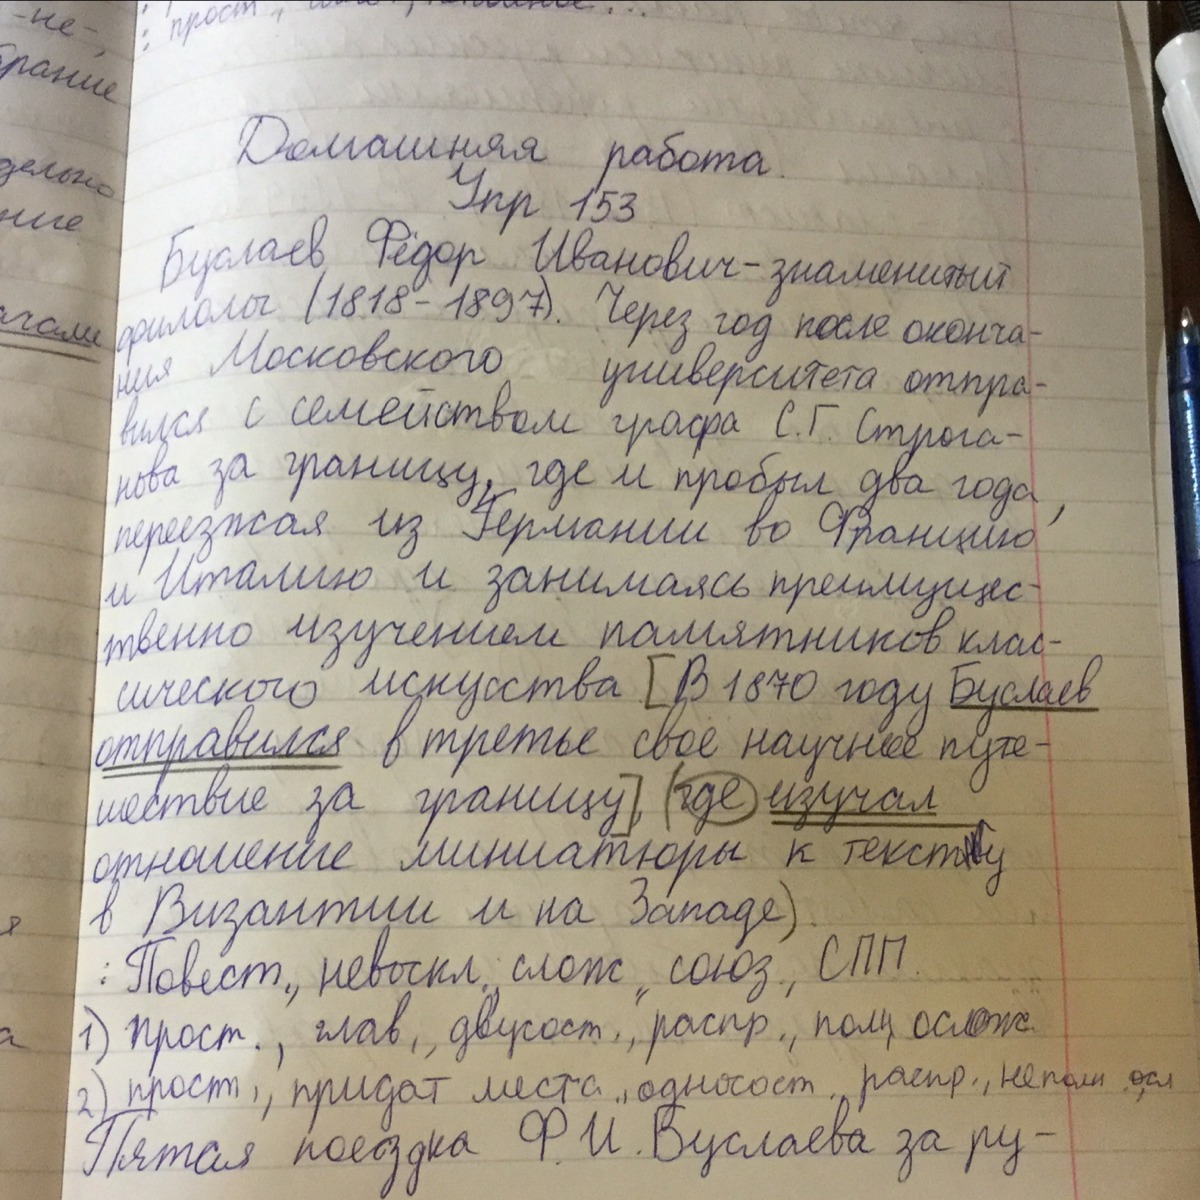 -не-,
прост.,
брание
дельно
ние
ачами
Домашняя работа.
Упр 153
Буслаев Фёдор Иванович-знаменитый
филолог (1818-1897). Через год после оконча-
ния Московского университета отпра-
вился с семейством графа С.Г. Строга-
нова за границу, где и пробыл два года,
переезжая из Германии во Францию
и Италию и занимаясь преимущес-
твенно изучением памятников клас-
сического искусства [В 1870 году Буслаев
отправился в третье своё научное путе-
шествие за границу], (где изучал
отношение миниатюры к тексту
в Византии и на Западе).
: Повест., невоскл., слож., союз., СПП.
1) прост., глав., двусост., распр., полн, ослож.
2) прост., придат места, односост., распр., неполн осл
Пятая поездка Ф.И. Буслаева за ру-